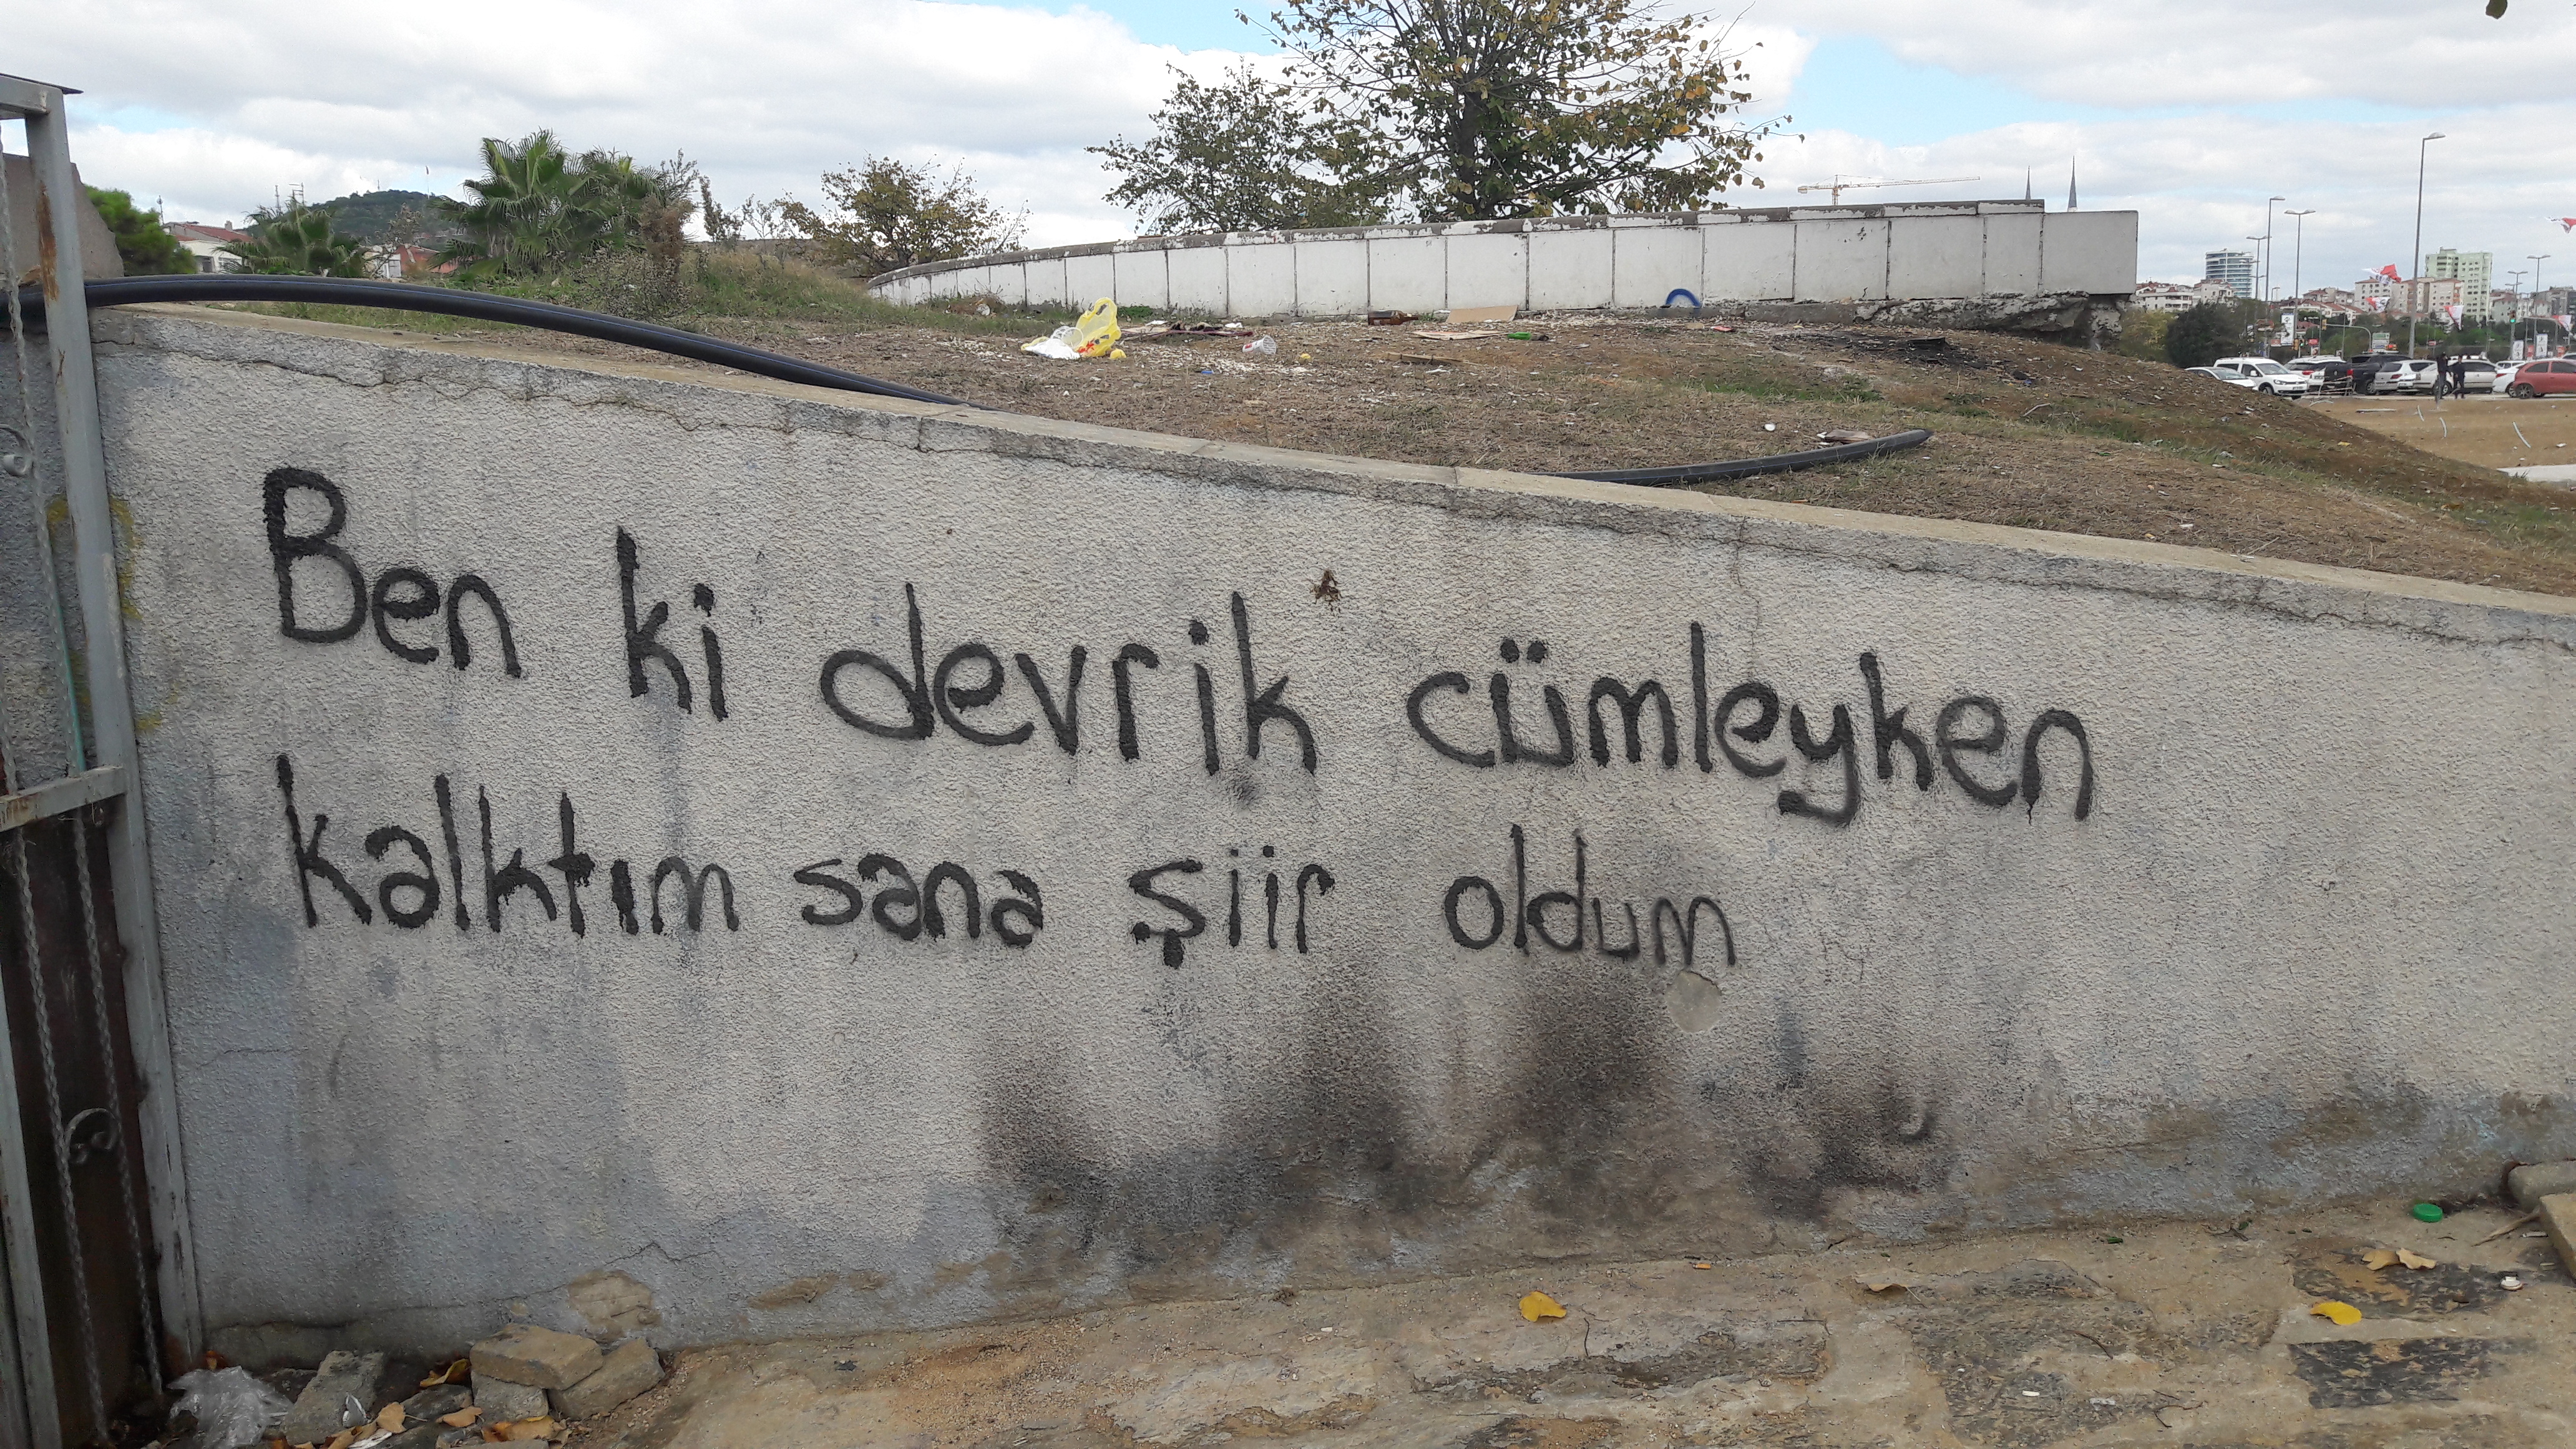 Ben ki devrik cümleyken
kalktım sana şiir oldum